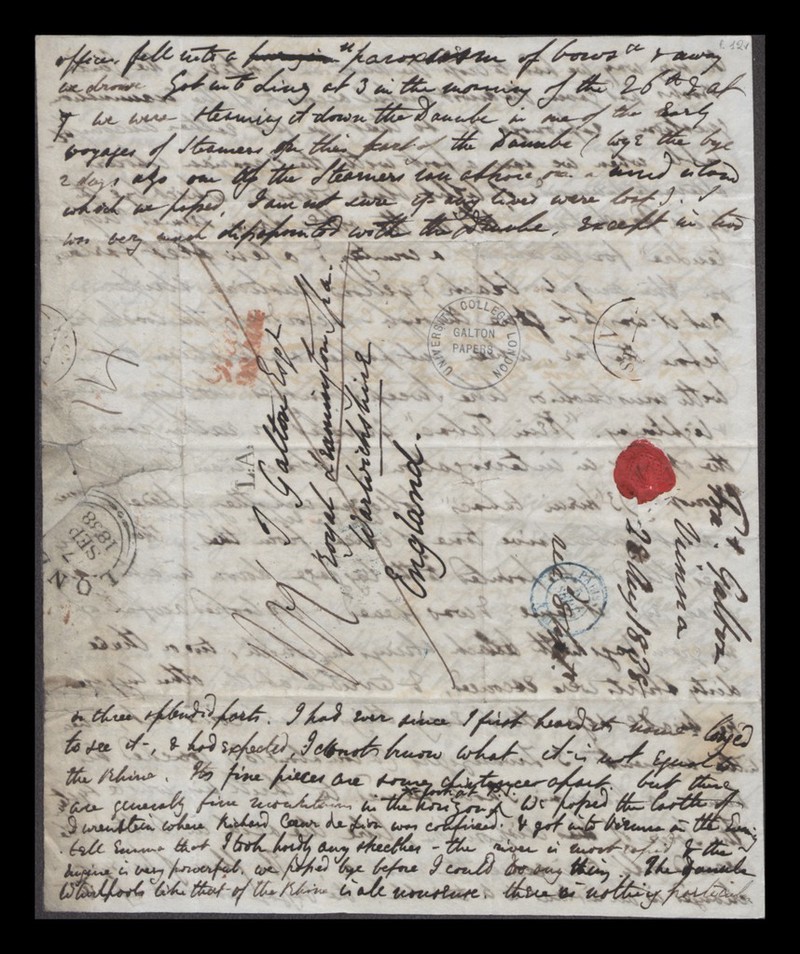 offices fell into a "paroxism of bows" & away
we drove. Got into Linz at 3 in the morning of the 26th & at
7 we were steaming it down the Danube in one of the Early
voyages of Steamers on this part of the Danube (bye the bye
2 days ago one of the Steamers ran ashore on a island
which we passed, I am not sure if any lives were lost). I
was very much disappointed with the Danube, except in two
UNIVERSITY COLLEGE LONDON
GALTON
PAPERS
14
L.A.
T Galton Esqr
Royal Leamington Spa.
Warwickshire
England.
LON
7
SEP
1838
Fs Galton
Vienna
28 Aug 1838
or three splendid parts. I had ever since I first heard its name longed
to see it, & had expected, I do not know what. it is not equal to
the Rhine. Its fine pieces are some distance apart but there
are generally fine mountains in the horizon. We passed the castle of
Dwrenstein where Richard Cœur de Lion was confined. & got into Vienna in the Eveng
tell Emma that I took hardly any sketches - the river is most rapid & the
engine is very powerful. we passed bye before I could do any thing. The Danube
Whirlpools like that of the Rhine is all nonsense. there is nothing